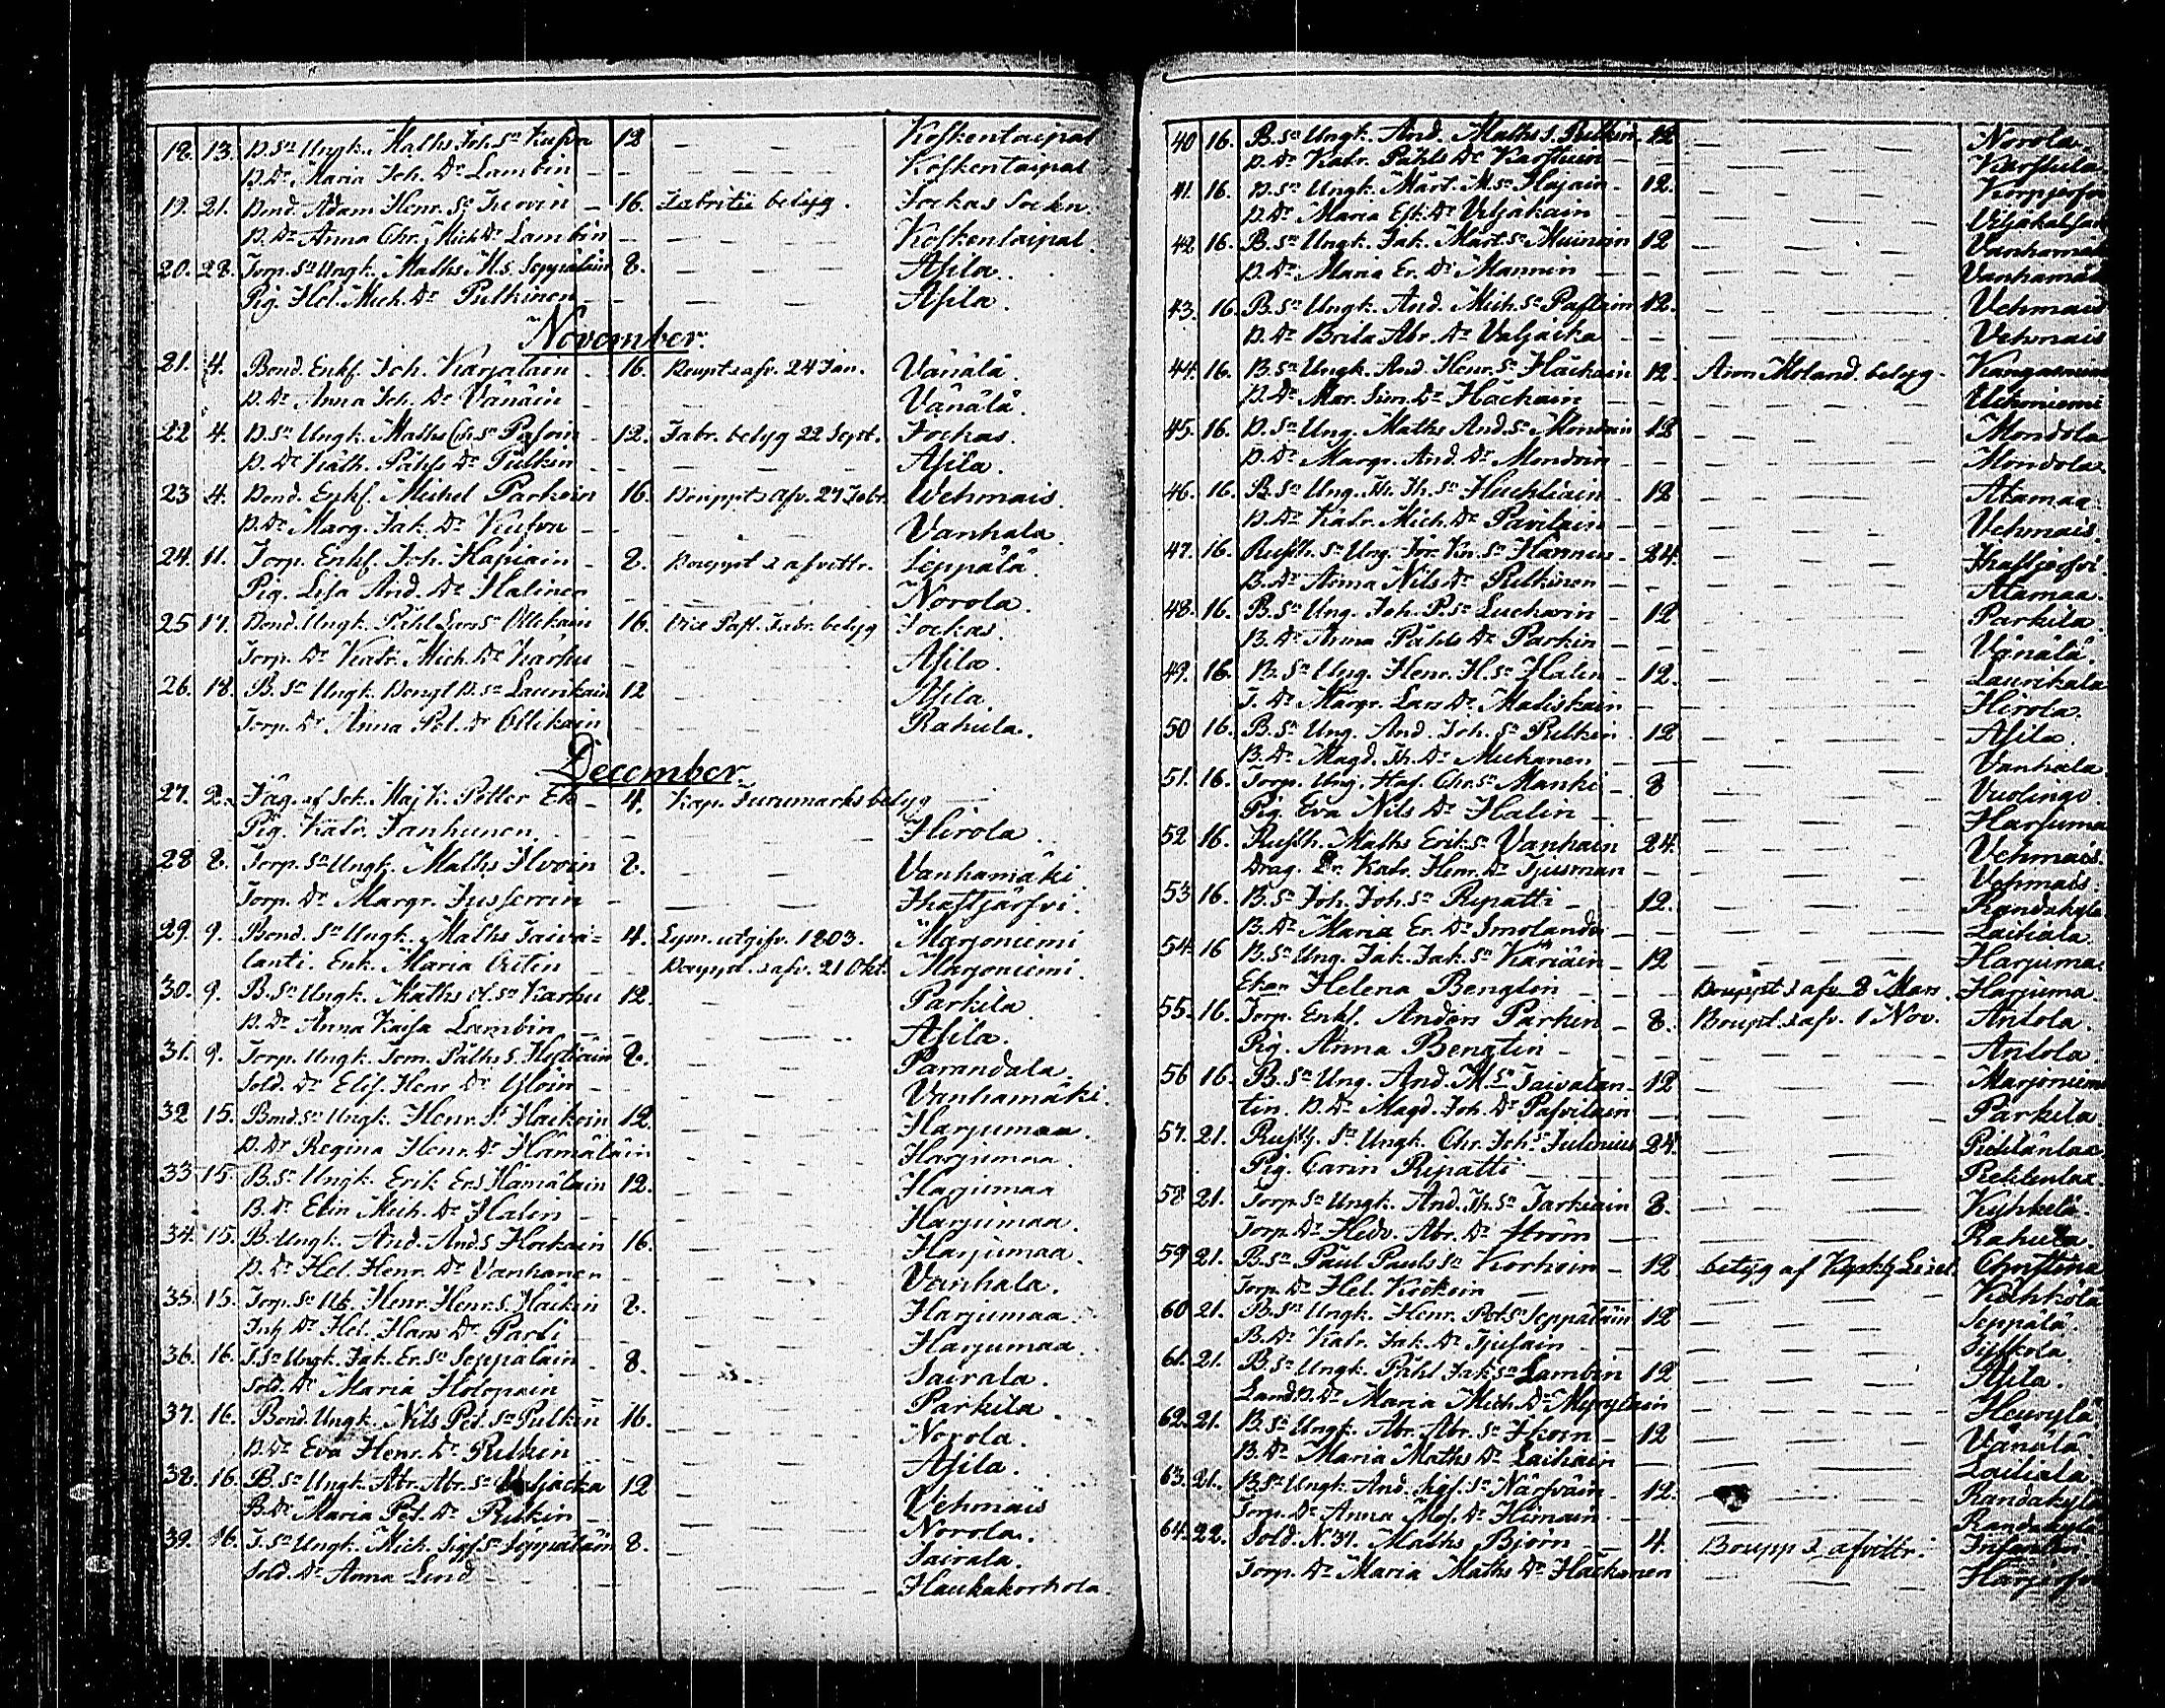 18. 13. B. Sn Ungk. Maths Joh. Sn Kusva 12 — — — Koskentaipal
B. Dr Maria Joh. Dr Lambin — — — Koskentaipal
19. 21. Bond. Adam Henr. Sn Inovin — 16. Fabritii betyg. Jockas Sockn.
B. Dr Anna Chr. Mich. Dr Lambin — — — Koskentaipal.
20. 28. Torp. Sn Ungk. Maths M. S. Seppäläin 8. — — — Asila.
Pig. Hel. Mich. Dr Pulkinen — — — Asila.
November.
21. 4. Bond. Enkf. Joh. Karjalain — 16. Boupt. afv. 24 Jan. Vänälä.
B. Dr Anna Joh. Dr Vänäin — — — Vänälä.
22 4. B. Sn Ungk. Maths Chr. Sn Pasoin — 12. Fabr. betyg 22 Sept. Jockas.
B. Dr Kath. Påhls Dr Pulkin — — — Asila.
23 4. Bond. Enkf. Michel Parkoin 16. Bouppt. afv. 27 Febr. Wehmais.
B. Dr Marg. Jak. Dr Kusva — — — Vanhala.
24. 11. Torp. Enkf. Joh. Hapiain — 8. Bouppt & afvittr. Seppälä.
Pig. Lisa And. Dr Halinen — — — Norola.
25 17. Bond. Ungk. Påhl Lars Sn Ollikain 16. Vice Past. Fabr. betyg Jockas.
Torp. Dr Katr. Mich. Dr Karhu — — — Asila.
26. 18. B. Sn Ungk. Bengt B. Sn Laurikain 12 — — — Asila.
Torp. Dr Anna Pet. Dr Ollikain — — — Rahula.
December.
27. 2. Jäg. af Sch. Maj. K. Petter Ek — 4. Kap. Furumarks betyg —
Pig. Katr. Janhunen. — — — Hirola.
28 8. Torp. Sn Ungk. Maths Ilvoin 8. — — — Vanhamäki
Torp. Dr Margr. Jussorrin — — — Ihastjärfvi.
29. 9. Bond. Sn Ungk. Maths Taiva- 4. Lysn. utgifv. 1803. Marjoniemi
lanti. Enk. Maria Ortin — — Bouppt. & afv. 21 Okt. Marjoniemi.
30. 9. B. Sn Ungk. Maths Ol. Sn Karhu 12. — — — Parkila.
B. Dr Anna Kaisa Lambin — — — Asila.
31. 9. Torp. Ungk. Tom. Påhls S. Hestiäin 8. — — — Parandala.
Sold. Dr Elis. Henr. Dr Ylöin — — — Vanhamäki.
32 15. Bond. Sn Ungk. Henr. Sn Haikoin 12. — — — Harjumaa.
B. Dr Regina Henr. Dr Hämäläin — — — Harjumaa.
33 15. B. Sn Ungk. Erik Ers. Hämäläin 12. — — — Harjumaa
B. Dr Elin Mich. Dr Halin — — — Harjumaa.
34. 15. B. Ungk. And. And. S Hockain 16. — — — Harjumaa.
B. Dr Hel. Henr. Dr Vanhanen — — — Vanhala.
35. 15. Torp. Sn Uk. Henr. Henr. S. Haikin 8. — — — Harjumaa.
Inh. Dr Hel. Hans Dr Parli — — — Harjumaa.
36. 16. T. Sn Ungk. Jak. Er. Sn Seppäläin — 8. — — — Sairala.
Sold. Dr Maria Holopain — — — Parkila.
37. 16. Bond. Ungk. Nils Pet. Sn Pulkin 16. — — — Norola.
B. Dr Eva Henr. Dr Pulkin — — — Asila.
38. 16. B. Sn Ungk. Abr. Abr. Sn Valjacka 12 — — — Vehmais
B. Dr Maria Pet. Dr Pulkin — — — Norola.
39. 16. T. Sn Ungk. Mich. Sigf. Sn Seppäläin 8. — — — Sairala.
Sold. Dr Anna Lind — — — Haukakorhola.
40 16. B. Sn Ungk. And. Maths S. Pulkin 12 — — — Norola
B. Dr Katr. Påhls Dr Karhuin — — — Karhula.
41. 16. B. Sn Ungk. Mårt. M. Sn Hajain — 12. — — — Korpjerfvi
B. Dr Maria Esk. Dr Viljakain — — — Viljakalsari
42. 16. B. Sn Ungk. Jak. Mårt. Sn Muinoin 12 — — — Vanhamäki
B. Dr Maria Er. Dr Mannin — — — Vanhamäki
43. 16. B. Sn Ungk. And. Mich. Sn Paslain 12. — — — Vehmais
B. Dr Brita Abr. Dr Valjacka — — — Vehmais
44. 16. B. Sn Ungk. And. Henr. Sn Häckain 12. Moland. betyg. Kangasniemi
B. Dr Mar. Sim. Dr Häckain — — — Uihoniemi
45. 16. B. Sn Ung. Maths And. Sn Mondoin 12 — — — Mondola
B. Dr Margr. And. Dr Mondoin — — — Mondola
46. 16. B. Sn Ung. Th. Th. Sn Huchtiain — 12 — — — Alamaa.
B. Dr Katr. Mich. Dr Pavilain — — — Vehmais.
47. 16. Rusth. Sn Ung. Jör. Kn. Sn Hannus — 24. — — — Ihastjerfvi.
B. Dr Anna Nils Dr Pulkinen — — — Alamaa.
48. 16. B. Sn Ung. Joh. P. Sn Lucharin — 12 — — — Parkila.
B. Dr Anna Påhls Dr Parkin — — — Vänälä.
49. 16. B. Sn Ung. Henr. H. Sn Halin — 12. — — — Laurikala
T. Dr Margr. Lars Dr Maliskain — — — Hirola.
50 16. B. Sn Ung. And. Joh. Sn Pulkin — 12 — — — Asila.
B. Dr Magd. Th. Dr Muhonen — — — Vanhala.
51. 16. Torp. Ung. Has. Chr. Sn Manki — 8 — — — Vuolingo.
Pig. Eva Nils Dr Halin — — — Harjuma
52 16. Rusth. Maths Erik. Sn Vanhain 24. — — — Vehmais.
Drag. Dr. Katr. Henr. Dr Tjusman — — — Vehmais.
53 16. B. Sn Joh. Joh. Sn Ripatti — 12. — — — Randakylä
B. Dr Maria Er. Dr Smolander — — — Laitiala.
54 16 B. Sn Ung. Jak. Jak. Sn Käriäin — 12 — — — Harjuma.
Enkan Helena Bengtin — — Bouppt & afv. 8 Mars. Harjuma.
55. 16. Torp. Enkf. Anders Parkin — 8. Boupt. & afv. 1 Nov. Antola.
Pig. Anna Bengtin — — — Antola
56 16. B. Sn Ung. And. M. Sn Taivalan- 12 — — — Marjoniemi
tin. B. Dr Magd. Joh. Dr Pasvilain — — — Parkila
57. 21. Rusth. Sn Ungk. Chr. Joh. Sn Julenius 24. — — — Pitkänlax
Pig. Carin Ripatti — — — Pitkänlax.
58 21. Torp. Sn Ungk. And. Th. Sn Tarkiain 8. — — — Kyhkelä.
Torp. Dr Hedv. Abr. Dr Ström — — — Rahula.
59 21. B. Sn Paul Pauls Sn Korhoin — 12 betyg af Christina
Torp. Dr Hel. Kockoin — — — Kähkölä
60 21. B. Sn Ungk. Henr. Pet. Sn Seppäläin 12 — — — Seppälä.
B. Dr Katr. Jak. Dr Tjusain — — — Syškola.
61. 21. B. Sn Ungk. Påhl Jak. Sn Lambin 12 — — — Asila.
Land. B. Dr Maria Mich. Dr Myrylain — — — Heurylä
62. 21. B. Sn Ungk. Abr. Abr. Sn Ihoin — 12 — — — Vänälä
B. Dr Maria Maths Dr Laihain — — — Laitiala.
63. 21. B. Sn Ungk. And. Sigf. Sn Närfväin 12. — — — Randakylä
Torp. Dr Anna Mos. Dr Himain — — — Randakylä
64. 22. Sold. N. 37. Maths Björn — 4. Boupp & afvittr. Infanteri.
Torp. Dr Maria Maths Dr Häckanen — — — Harjerfvi